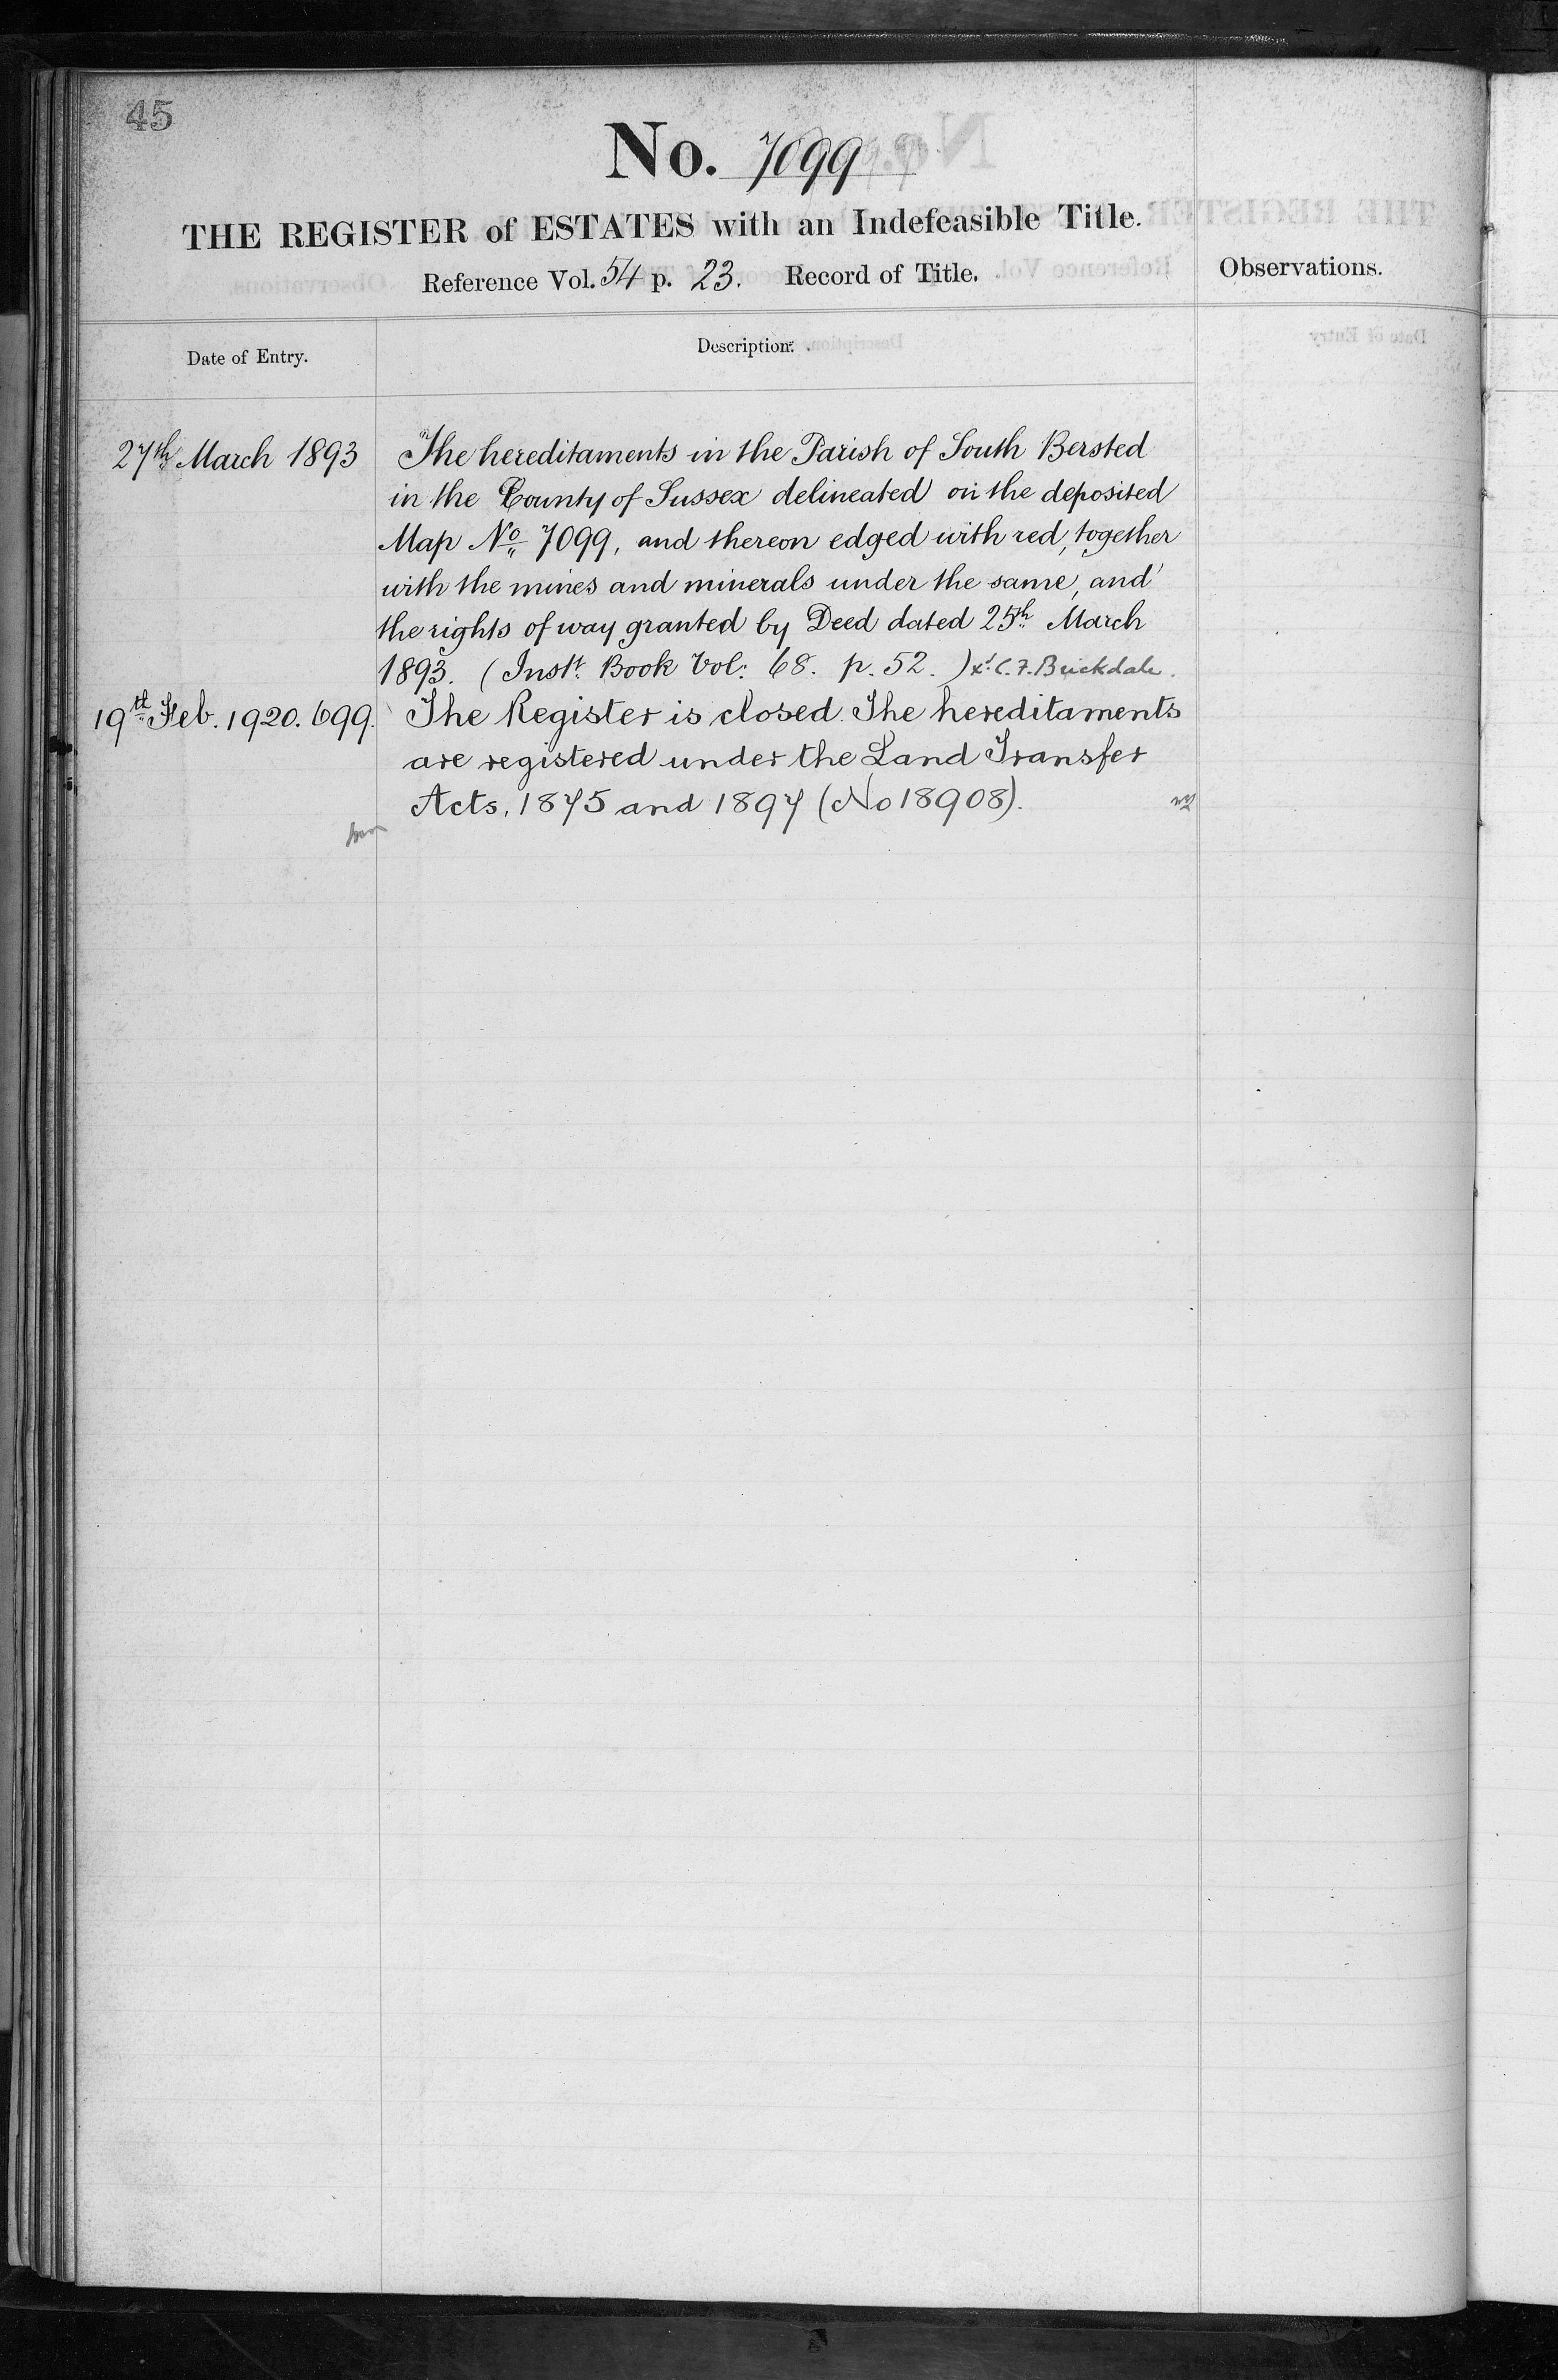 45
No. 7099
THE REGISTER of ESTATES with an Indefeasible Title.
Reference Vol. 54 p. 23. Record of Title.
Observations.
Date of Entry.
Description.
27th March 1893
The hereditaments in the Parish of South Bersted
in the County of Sussex delineated on the deposited
Map No 7099, and thereon edged with red, together
with the mines and minerals under the same, and
the rights of way granted by Deed dated 25th March
1893. (Instt. Book Vol: 68. p. 52.) xd. C. F. Brickdale.
19th Feb. 1920. 699.
The Register is closed. The hereditaments
are registered under the Land Transfer
Acts, 1875 and 1897 (No 18908).